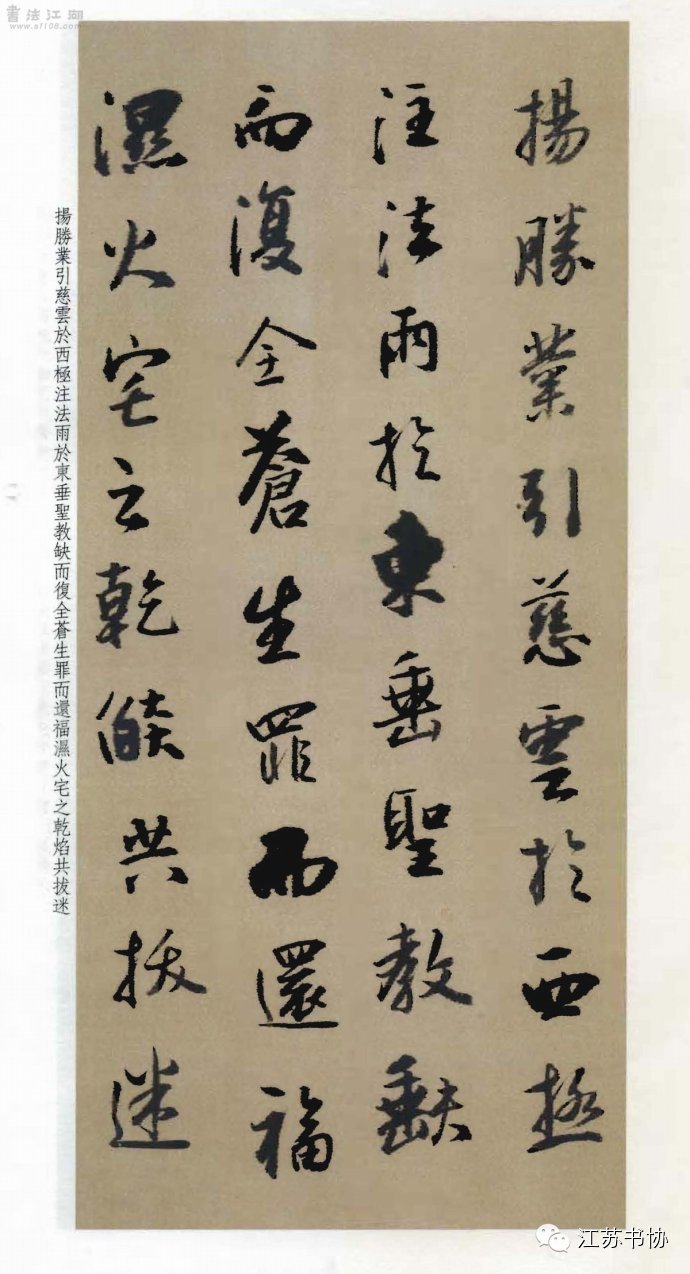 書法江湖
www.sf108.com
揚勝業引慈雲於西極
注法雨於東垂聖教缺
而復全蒼生罪而還福
濕火宅之乾焰共拔迷
揚勝業引慈雲於西極注法雨於東垂聖教缺而復全蒼生罪而還福濕火宅之乾焰共拔迷
江苏书协